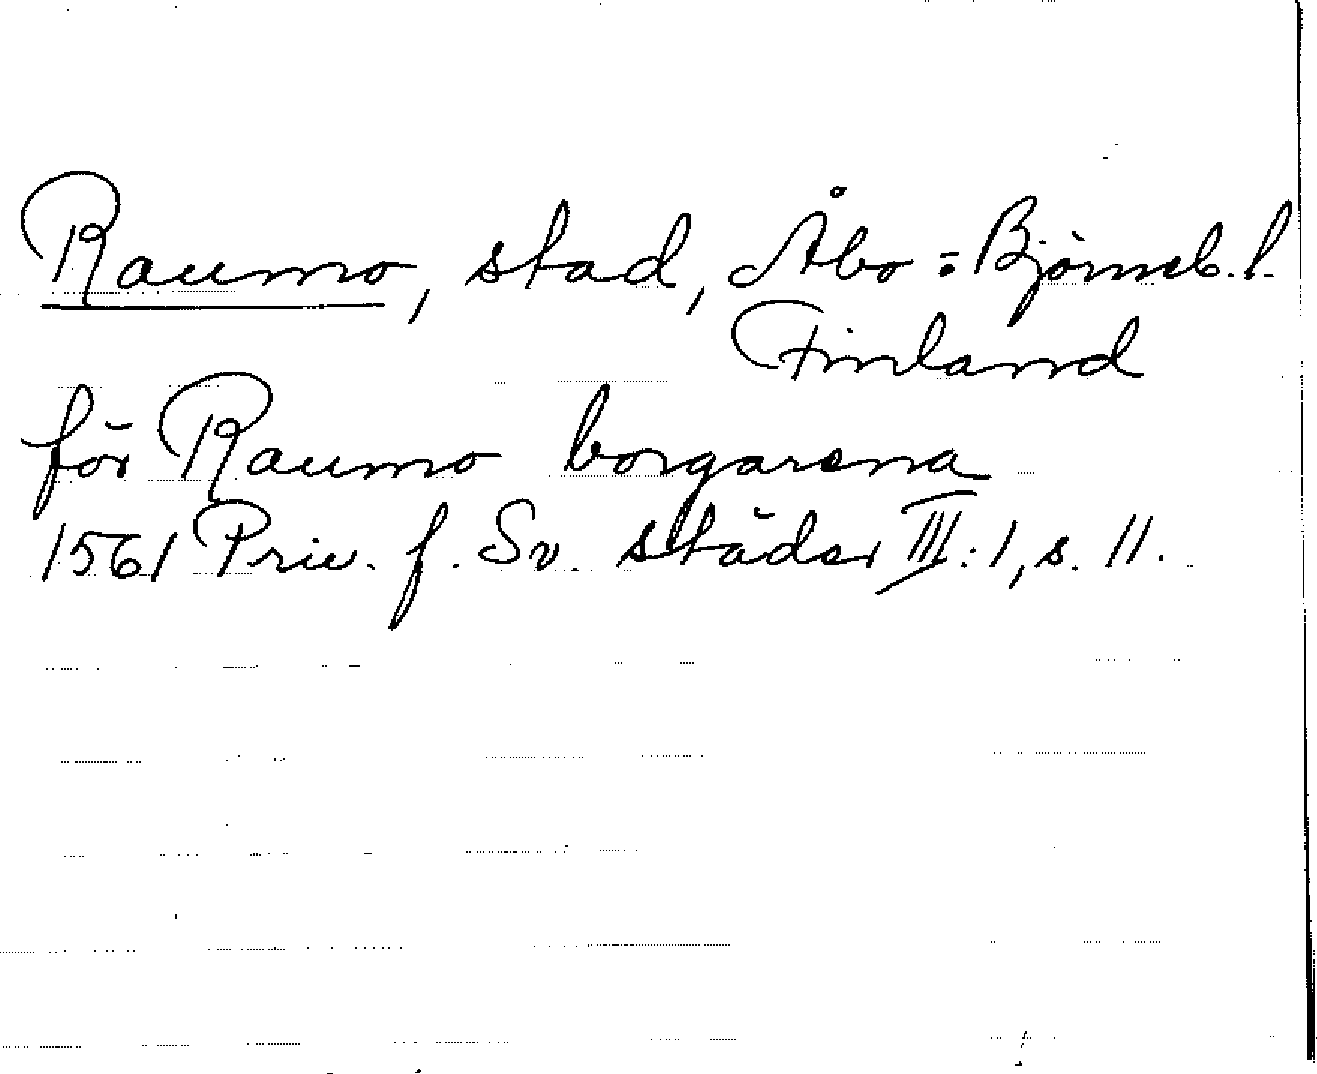 Raumo, stad, Åbo-Björneb. l.
Finland
för Raumo borgarena
1561 Priv. f. Sv. städer III:1, s. 11.